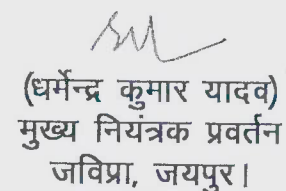 (धर्मेन्द्र कुमार यादव)
मुख्य नियंत्रक प्रवर्तन
जविप्रा, जयपुर।